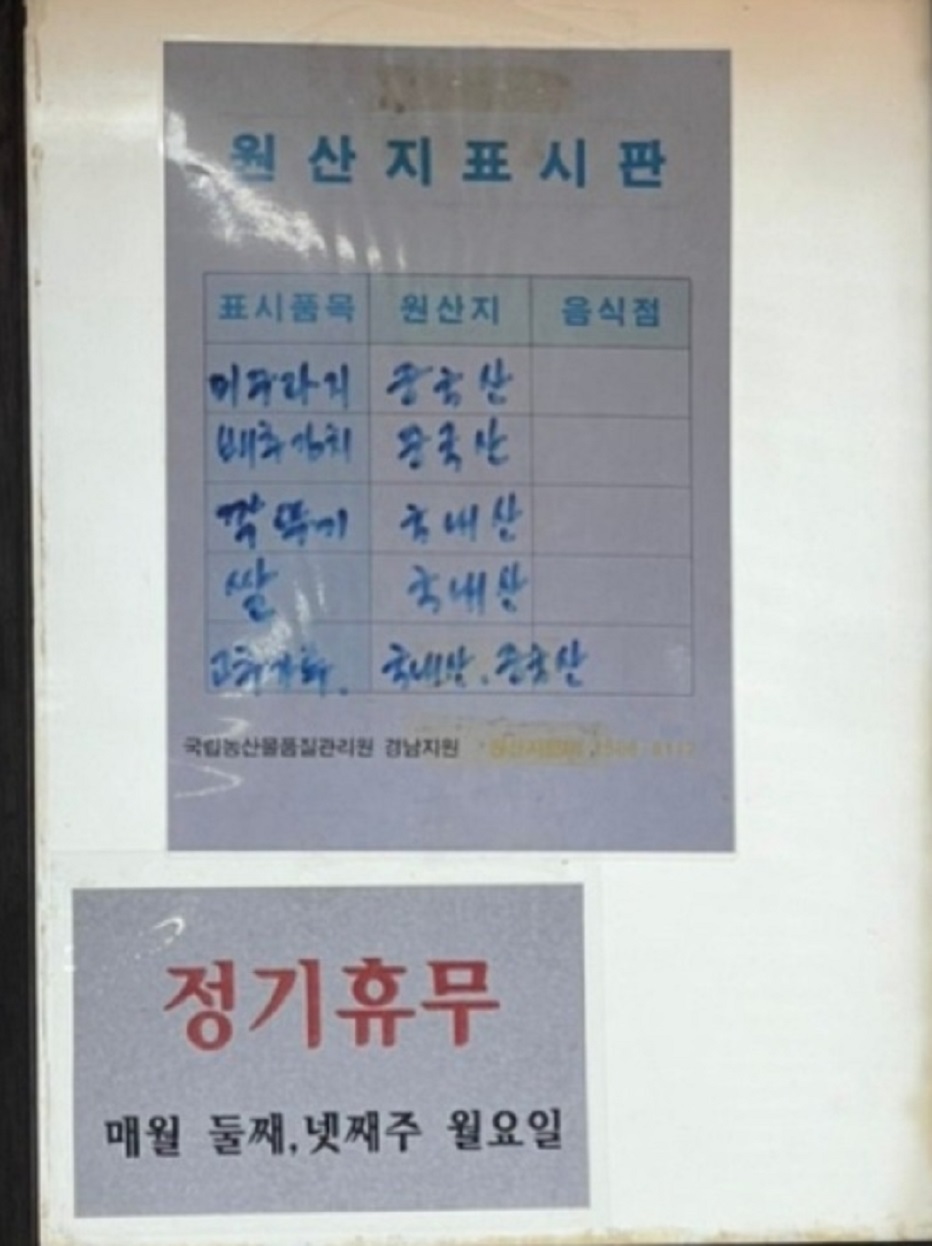 원산지표시판
표시품목 원산지 음식점
미꾸라지 중국산
배추김치 중국산
깍뚜기 국내산
쌀 국내산
고추가루. 국내산. 중국산
국립농산물품질관리원 경남지원
정기휴무
매월 둘째,넷째주 월요일